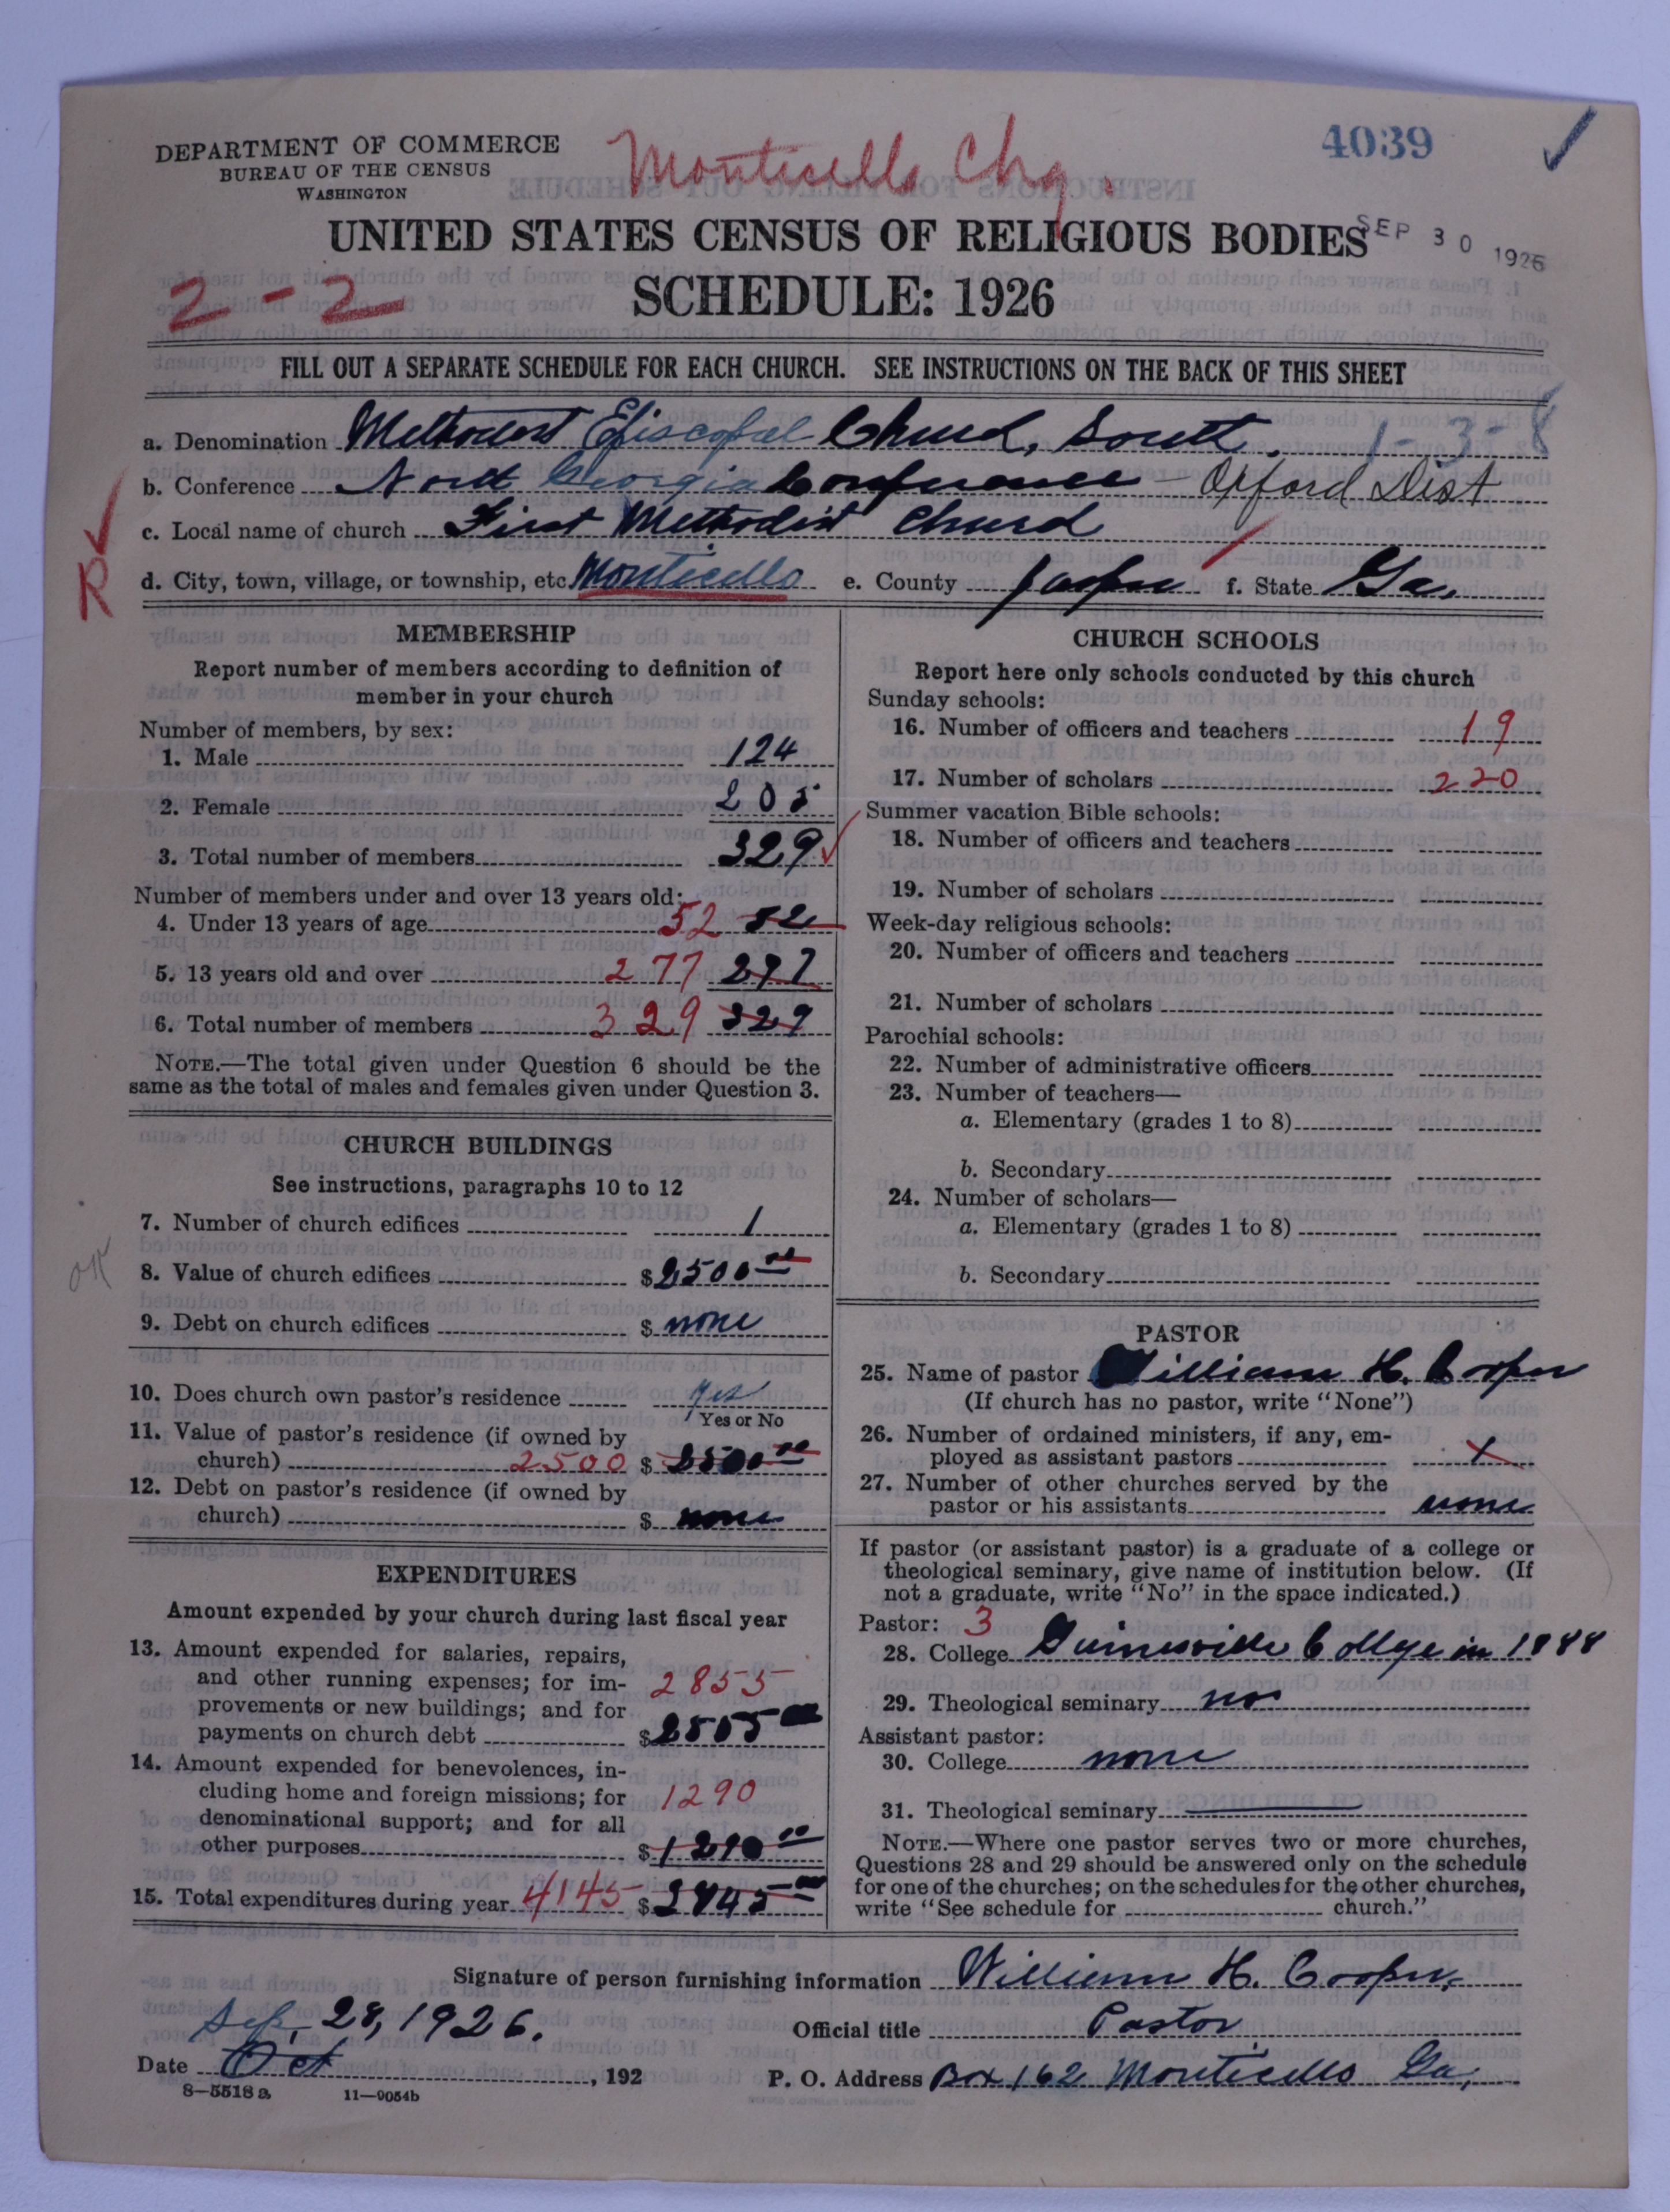 DEPARTMENT OF COMMERCE
BUREAU OF THE CENSUS
WASHINGTON
Monticello Chg.
4039
UNITED STATES CENSUS OF RELIGIOUS BODIES
SEP 30 1926
2-2
SCHEDULE: 1926
FILL OUT A SEPARATE SCHEDULE FOR EACH CHURCH. SEE INSTRUCTIONS ON THE BACK OF THIS SHEET
a. Denomination Methodist Episcopal Church, South. 1-3-8
b. Conference North Georgia Conference - Oxford Dist
c. Local name of church First Methodist Church
R
d. City, town, village, or township, etc Monticello e. County Jasper f. State Ga.
MEMBERSHIP
Report number of members according to definition of
member in your church
Number of members, by sex:
1. Male 124
2. Female 205
3. Total number of members 329
Number of members under and over 13 years old:
4. Under 13 years of age 52 52
5. 13 years old and over 277 277
6. Total number of members 329 329
NOTE.—The total given under Question 6 should be the
same as the total of males and females given under Question 3.
CHURCH BUILDINGS
See instructions, paragraphs 10 to 12
7. Number of church edifices 1
OK
8. Value of church edifices $2500 00
9. Debt on church edifices $ none
10. Does church own pastor's residence yes
Yes or No
11. Value of pastor's residence (if owned by
church) 2500 $ 2500 00
12. Debt on pastor's residence (if owned by
church) $ none
EXPENDITURES
Amount expended by your church during last fiscal year
13. Amount expended for salaries, repairs,
and other running expenses; for im-
2855
provements or new buildings; and for
payments on church debt $
14. Amount expended for benevolences, in-
cluding home and foreign missions; for
1290
denominational support; and for all
other purposes $ 1290 00
15. Total expenditures during year 4145 $
CHURCH SCHOOLS
Report here only schools conducted by this church
Sunday schools:
16. Number of officers and teachers 19
17. Number of scholars 220
Summer vacation Bible schools:
18. Number of officers and teachers
19. Number of scholars
Week-day religious schools:
20. Number of officers and teachers
21. Number of scholars
Parochial schools:
22. Number of administrative officers
23. Number of teachers—
a. Elementary (grades 1 to 8)
b. Secondary
24. Number of scholars—
a. Elementary (grades 1 to 8)
b. Secondary
PASTOR
25. Name of pastor William H. Cooper
(If church has no pastor, write "None")
26. Number of ordained ministers, if any, em-
ployed as assistant pastors X
27. Number of other churches served by the
pastor or his assistants none
If pastor (or assistant pastor) is a graduate of a college or
theological seminary, give name of institution below. (If
not a graduate, write "No" in the space indicated.)
Pastor: 3
28. College Gainesville College in 1888
29. Theological seminary no
Assistant pastor:
30. College none
31. Theological seminary
NOTE.—Where one pastor serves two or more churches,
Questions 28 and 29 should be answered only on the schedule
for one of the churches; on the schedules for the other churches,
write "See schedule for church."
Signature of person furnishing information William H. Cooper
Sep. 28, 1926.
Official title Pastor
Date Oct , 192
P. O. Address Box 162 Monticello Ga,
8—5518a 11—9054b